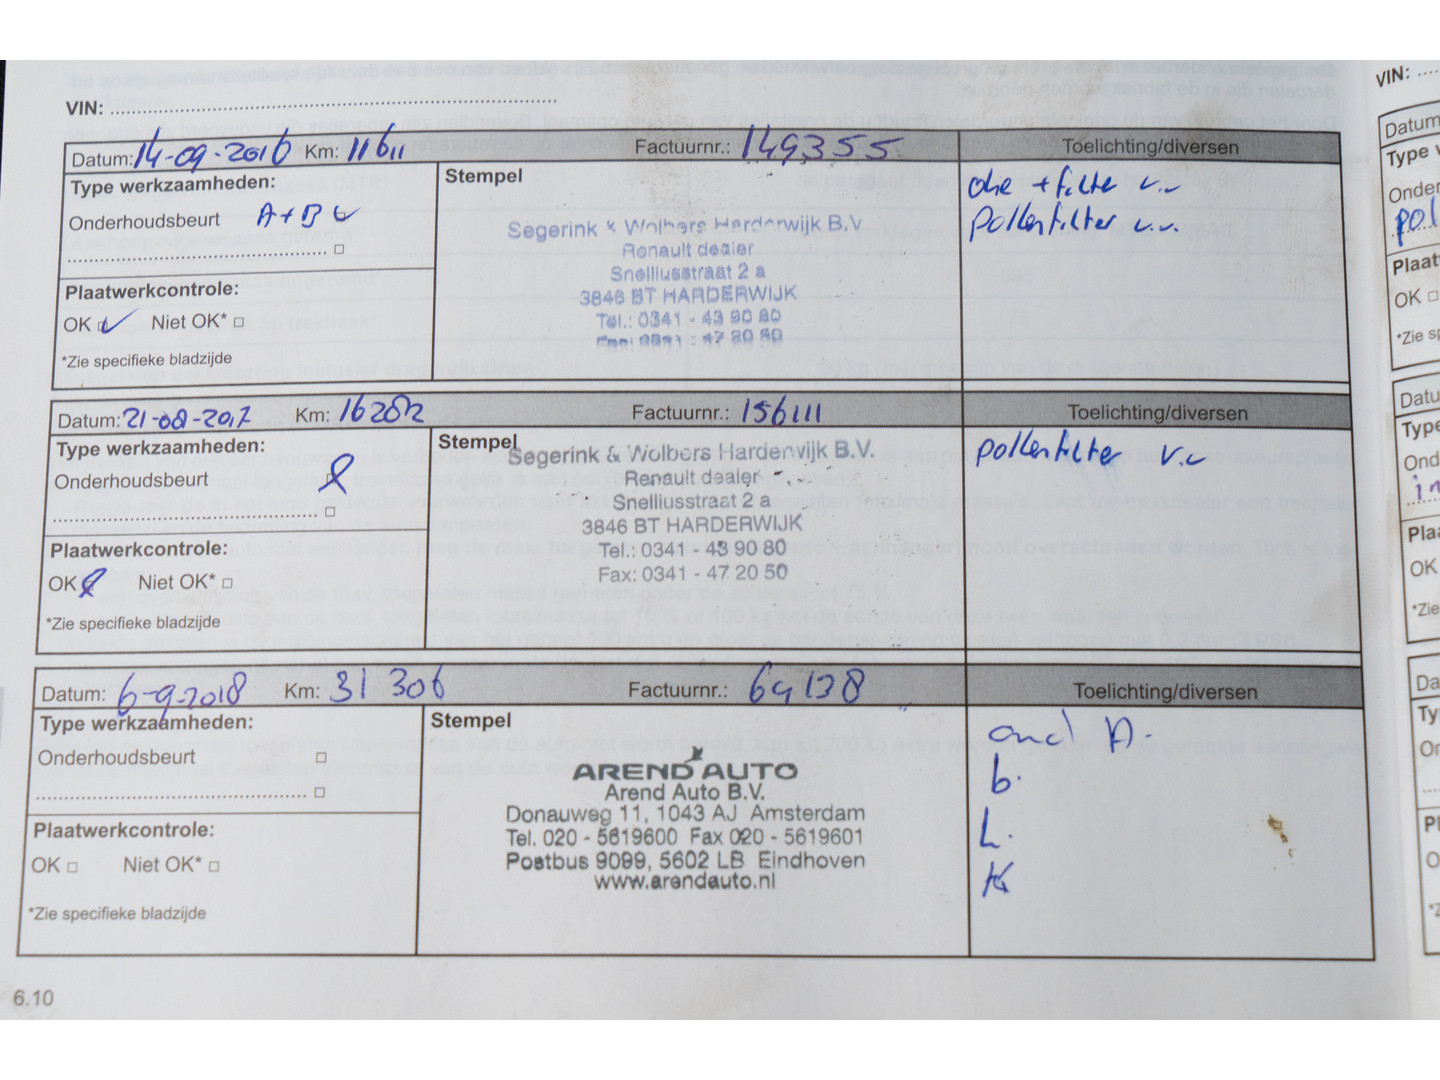 VIN:
Datum: 14-09-2016 Km: 11611 Factuurnr.: 149355 Toelichting/diversen
Type werkzaamheden:
Onderhoudsbeurt A+B
Plaatwerkcontrole:
OK Niet OK*
*Zie specifieke bladzijde
Stempel
Segerink & Wolbers Harderwijk B.V.
Renault dealer
Snelliusstraat 2 a
3846 BT HARDERWIJK
Tel.: 0341 - 43 90 80
Fax: 0341 - 47 20 50
olie + filter v.v
pollenfilter v.v.
Datum: 21-08-2017 Km: 16282 Factuurnr.: 156111 Toelichting/diversen
Type werkzaamheden:
Onderhoudsbeurt
Plaatwerkcontrole:
OK Niet OK*
*Zie specifieke bladzijde
Stempel
Segerink & Wolbers Harderwijk B.V.
Renault dealer
Snelliusstraat 2 a
3846 BT HARDERWIJK
Tel.: 0341 - 43 90 80
Fax: 0341 - 47 20 50
pollenfilter v.v
Datum: 6-9-2018 Km: 31306 Factuurnr.: 69138 Toelichting/diversen
Type werkzaamheden:
Onderhoudsbeurt
Plaatwerkcontrole:
OK Niet OK*
*Zie specifieke bladzijde
Stempel
AREND AUTO
Arend Auto B.V.
Donauweg 11, 1043 AJ Amsterdam
Tel. 020 - 5619600 Fax 020 - 5619601
Postbus 9099, 5602 LB Eindhoven
www.arendauto.nl
ond A.
b.
L.
K
6.10
VIN:
Datum
Type
OK